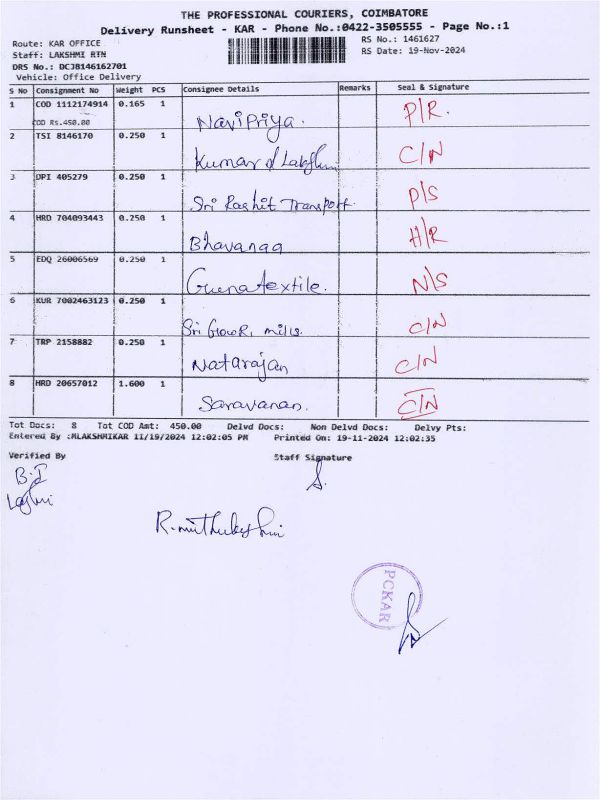 THE PROFESSIONAL COURIERS, COIMBATORE
Delivery Runsheet - KAR - Phone No.:0422-3505555 - Page No.:1
Route: KAR OFFICE
RS No.: 1461627
Staff: LAKSHMI RTN
RS Date: 19-Nov-2024
DRS No.: DCJ8146162701
Vehicle: Office Delivery
S No Consignment No Weight PCS Consignee Details Remarks Seal & Signature
1 COD 1112174914 0.165 1 Navi Priya. P/R.
COD Rs.450.00
2 TSI 8146170 0.250 1 Kumar C/N
3 DPI 405279 0.250 1 Sri Transport. P/S
4 HRD 704093443 0.250 1 Bhavanaa H/R
5 EDQ 26006569 0.250 1 Gunatextile. N/S
6 KUR 7002463123 0.250 1 Sri mills. C/N
7 TRP 2158882 0.250 1 Natarajan C/N
8 HRD 20657012 1.600 1 Saravanan. C/N
Tot Docs: 8 Tot COD Amt: 450.00 Delvd Docs: Non Delvd Docs: Delvy Pts:
Entered By :MLAKSHMIKAR 11/19/2024 12:02:05 PM Printed On: 19-11-2024 12:02:35
Verified By Staff Signature
B.I
PCKAR